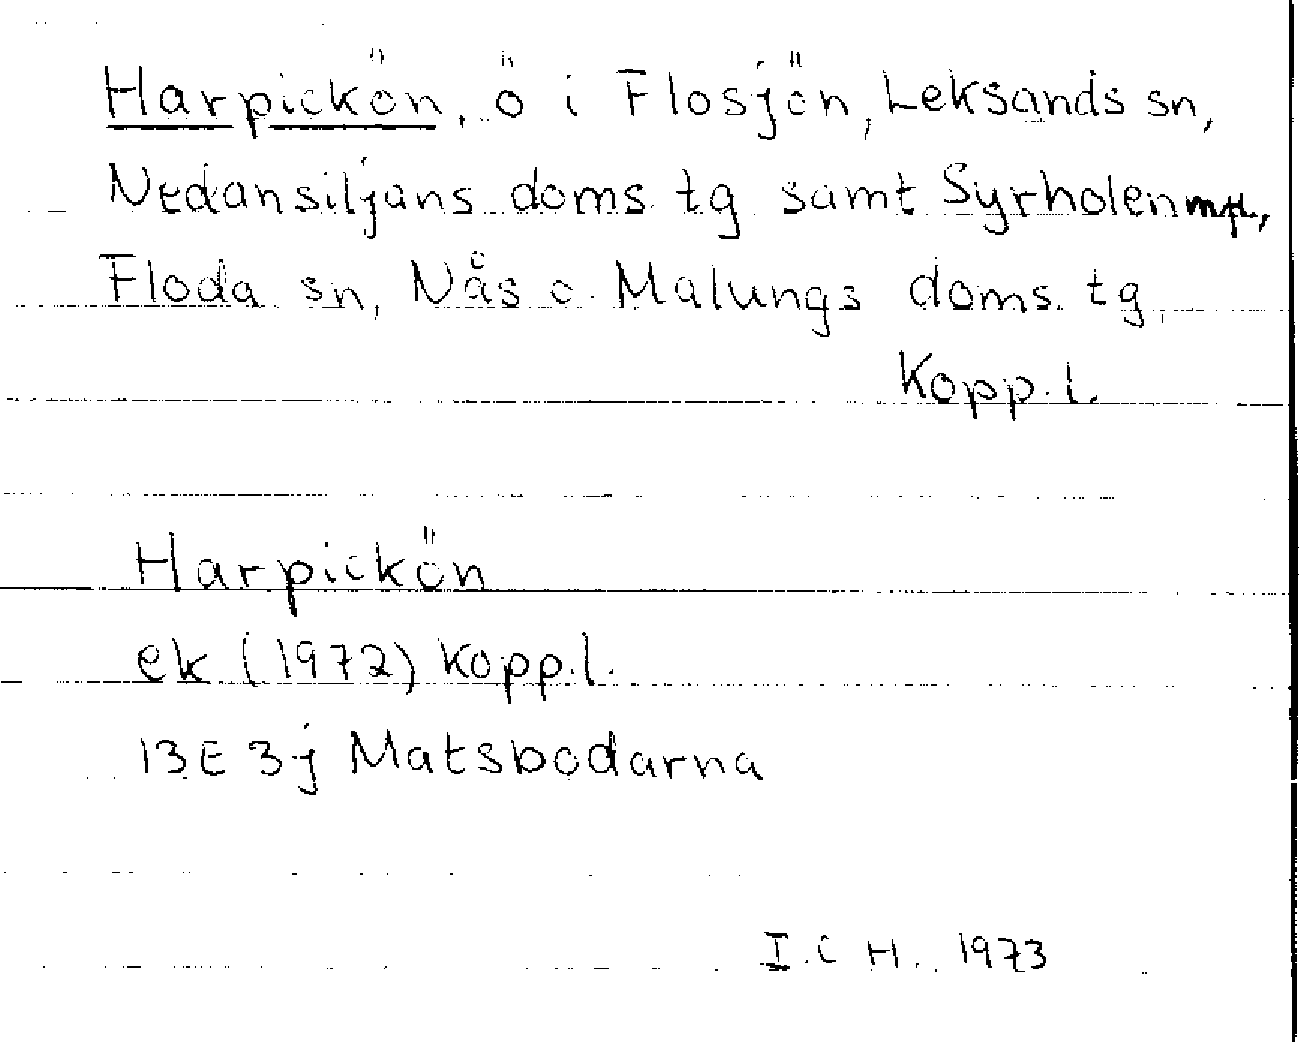 Harpickön, ö i Flosjön, Leksands sn,
Nedansiljans doms. tg samt Syrholen mfl,
Floda sn, Nås o. Malungs doms. tg
Kopp. l.
Harpickön
ek (1972) Kopp. l.
13E 3j Matsbodarna
I. C H. 1973